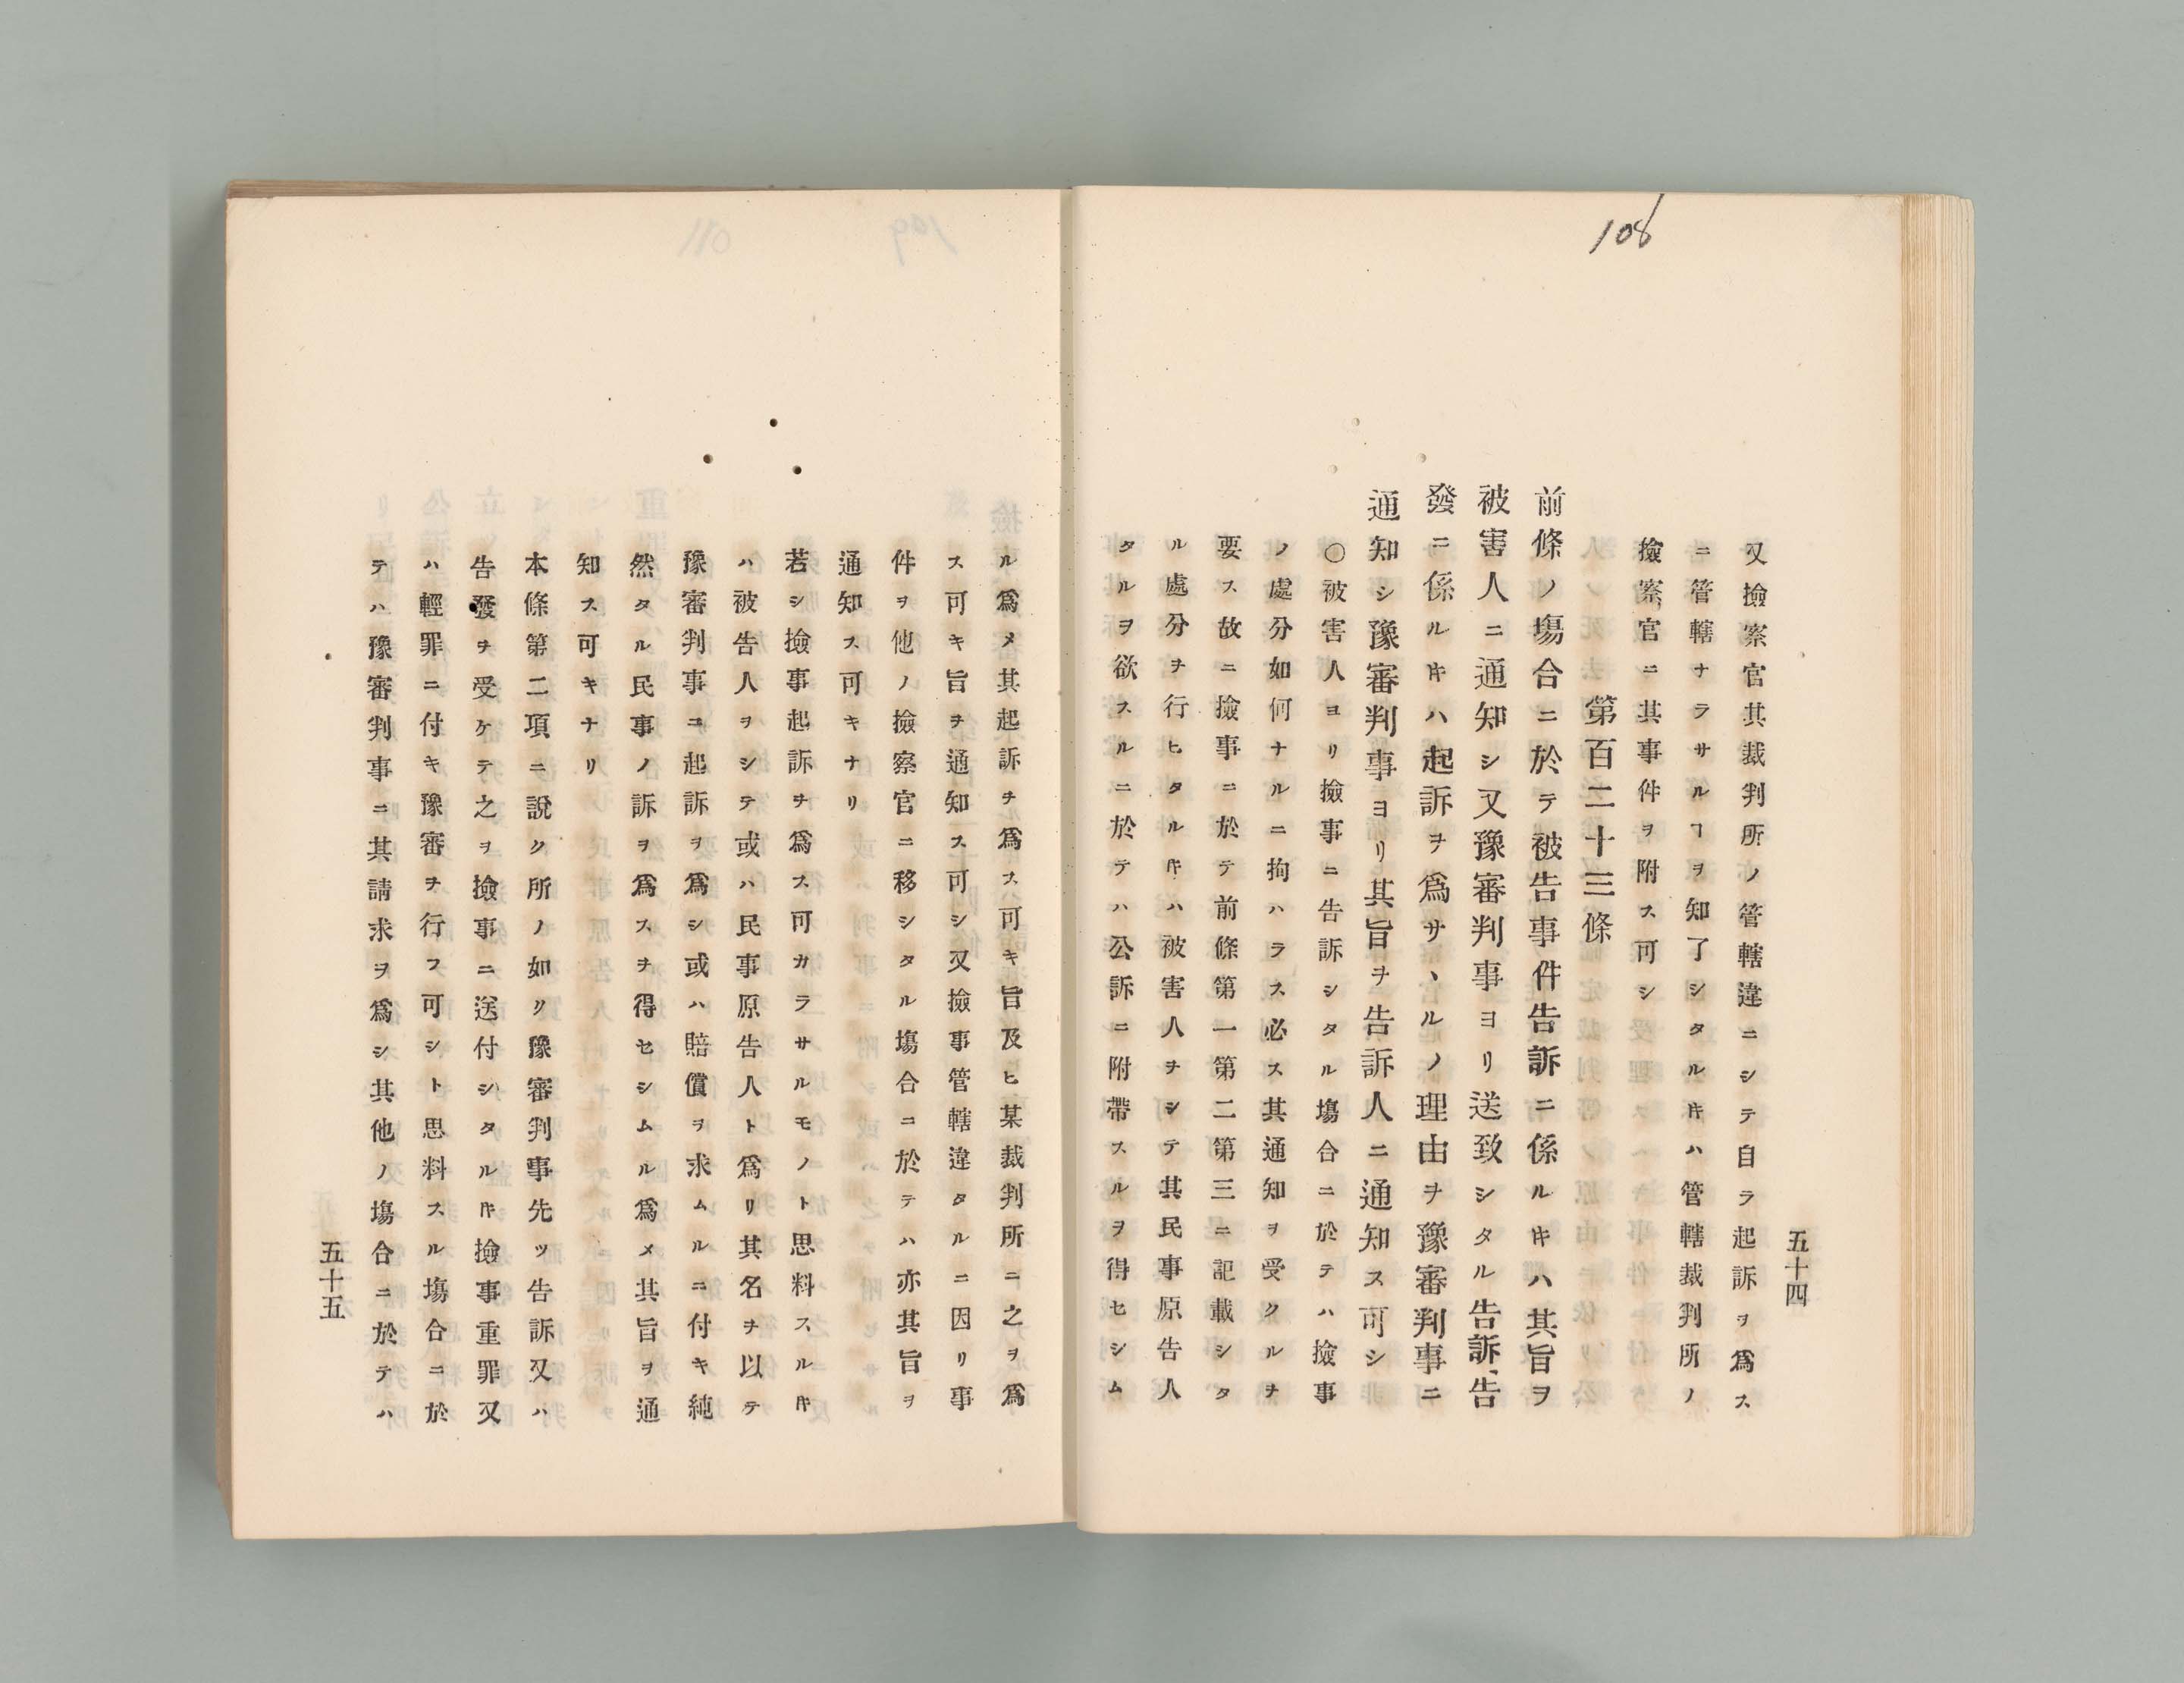 108
五十四
又撿察官其裁判所ノ管轄違ニシテ自ラ起訴ヲ爲ス
ニ管轄ナラサルヿヲ知了シタルキハ管轄裁判所ノ
撿察官ニ其事件ヲ附ス可シ
第百二十三條
前條ノ塲合ニ於テ被告事件告訴ニ係ルキハ其旨ヲ
被害人ニ通知シ又豫審判事ヨリ送致シタル告訴、告
發ニ係ルキハ起訴ヲ爲サヽルノ理由ヲ豫審判事ニ
通知シ豫審判事ヨリ其旨ヲ告訴人ニ通知ス可シ
○被害人ヨリ撿事ニ告訴シタル塲合ニ於テハ撿事
ノ處分如何ナルニ拘ハラス必ス其通知ヲ受クルヲ
要ス故ニ撿事ニ於テ前條第一第二第三ニ記載シタ
ル處分ヲ行ヒタルキハ被害人ヲシテ其民事原告人
タルヲ欲スルニ於テハ公訴ニ附帶スルヲ得セシム
ル爲メ其起訴ヲ爲ス可キ旨及ヒ某裁判所ニ之ヲ爲
ス可キ旨ヲ通知ス可シ又撿事管轄違タルニ因リ事
件ヲ他ノ撿察官ニ移シタル塲合ニ於テハ亦其旨ヲ
通知ス可キナリ
若シ撿事起訴ヲ爲ス可カラサルモノト思料スルキ
ハ被告人ヲシテ或ハ民事原告人ト爲リ其名ヲ以テ
豫審判事ニ起訴ヲ爲シ或ハ賠償ヲ求ムルニ付キ純
然タル民事ノ訴ヲ爲スヲ得セシムル爲メ其旨ヲ通
知ス可キナリ
本條第二項ニ說ク所ノ如ク豫審判事先ッ告訴又ハ
告發ヲ受ケテ之ヲ撿事ニ送付シタルキ撿事重罪又
ハ輕罪ニ付キ豫審ヲ行フ可シト思料スル塲合ニ於
テハ豫審判事ニ其請求ヲ爲シ其他ノ塲合ニ於テハ
五十五